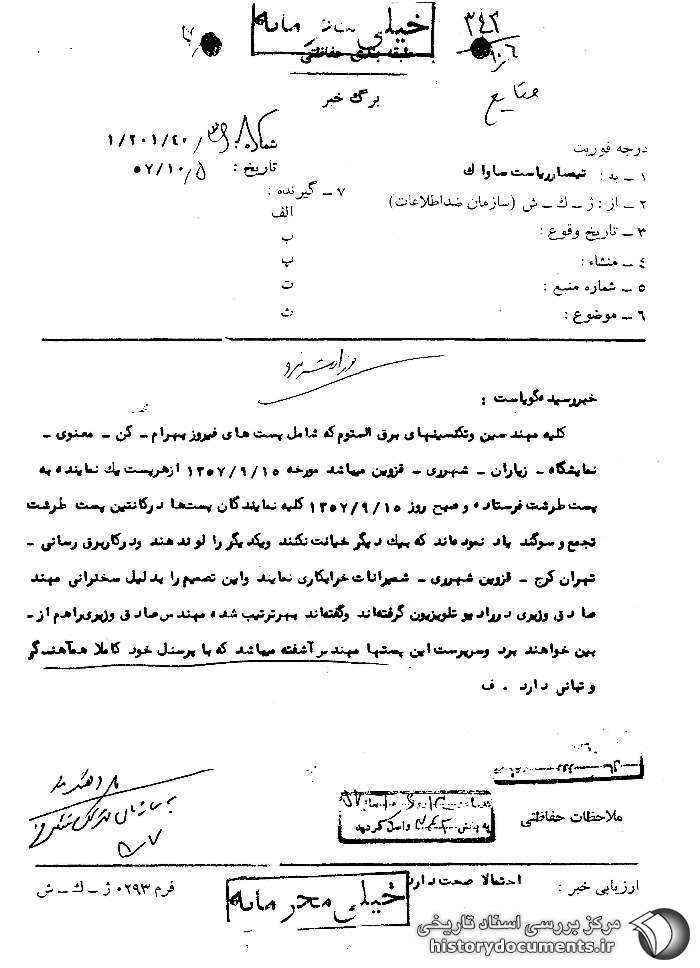 خیلی محرمانه
۳۴۲
۱۰/۶
طبقه بندی حفاظتی
برگ خبر
صنایع
شماره: ۱/۲۰۱/۴۰
درجه فوریت
تاریخ: ۵۷/۱۰/۵
۱ ـ به: تیمسار ریاست ساواک
۷ ـ گیرنده:
۲ ـ از: ژ ـ ک ـ ش (سازمان ضداطلاعات)
الف
۳ ـ تاریخ وقوع:
ب
۴ ـ منشاء:
پ
۵ ـ شماره منبع:
ت
۶ ـ موضوع:
ث
وزارت نیرو
خبر رسیده گویاست:
کلیه مهندسین وتکنسینهای برق الستوم که شامل پست های فیروز بهرام ـ کن ـ معنوی ـ
نمایشگاه ـ زیاران ـ شهرری ـ قزوین میباشد مورخه ۱۳۵۷/۹/۱۵ از هر پست یک نماینده به
پست طرشت فرستاده و صبح روز ۱۳۵۷/۹/۱۵ کلیه نمایندگان پست‌ها در کانتین پست طرشت
تجمع و سوگند یاد نموده‌اند که بیک دیگر خیانت نکنند ویکدیگر را لو ندهند ودرکاربرق رسانی ـ
تهران کرج ـ قزوین شهرری ـ شمیرانات خرابکاری نمایند واین تصمیم را بدلیل سخنرانی مهند
صادق وزیری در رادیو تلویزیون گرفته‌اند وگفته‌اند بهر ترتیب شده مهندس صادق وزیری راهم از ـ
بین خواهند برد وسرپرست این پستها مهندس آشفته میباشد که با پرسنل خود کاملا هم‌آهنگی
و تبانی دارد . ف
ملاحظات حفاظتی
به بخش واصل گردید
۵۷
ارزیابی خبر: احتمالا صحت دارد
فرم ۰۲۹۳ ژ ـ ک ـ ش
خیلی محرمانه
مرکز بررسی اسناد تاریخی
historydocuments.ir